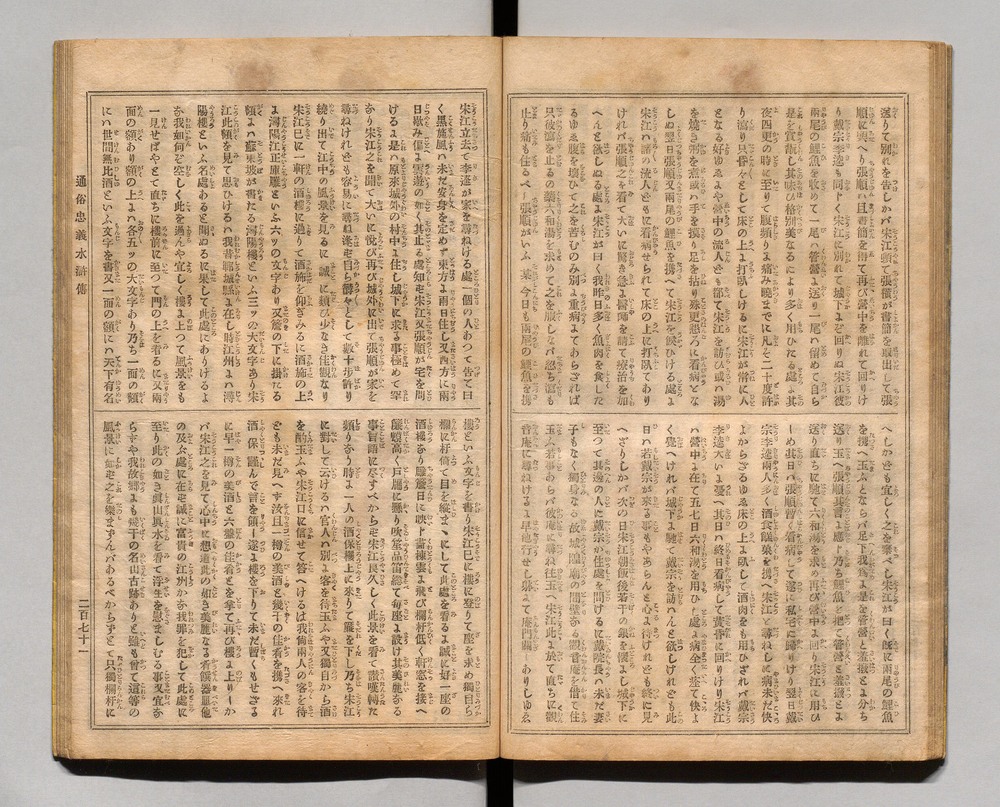 送りて別れを告しかバ宋江頓て張横が書簡を取出して張
順に與へり張順ハ且書簡を得て再び營中を離れて回りけ
り戴宗李逵も同じく宋江に別れて城中よぞ回りぬ宋江彼
兩尾の鯉魚を收めて一尾ハ管營よ送り一尾ハ留めて自ら
是を賞翫し其味ひ格別美なるにより多く用ひたる處よ其
夜四更の時に至りて腹頻りよ痛み曉までに凡そ二十度許
り瀉り只昏々として床の上よ打臥しけるに宋江が常に人
となる好ゆゑよや營中の流人とも都て宋江を訪ひ或ハ湯
を燒き粥を煮或ハ手を摸り足を拈り殊更懇ろに看病とな
しぬ翌日張順又兩尾の鯉魚を携へて宋江を候ひける處よ
宋江ハ諸の流人ともに看病せられて床の上に打臥てあり
けれバ張順之を看て大いに驚き急よ醫師を請て療治を加
へんと欲しぬる處よ宋江が曰く我昨日多く魚肉を食した
るゆゑ腹を壞ひて今を苦むのみ別よ重病よてあらされば
只彼瀉を止るの藥六和湯を求めて之を服しなバ忽ち瀉も
止り痛も住るべし張順がいふ某今日も兩尾の鯉魚を携
へしかども宜しく之を棄べし宋江が曰く既に兩尾の鯉魚
を携へ玉ふとならバ足下我為よ是を管營と差撥とよ分ち
送り玉へ張順承り乃ち鯉魚を把て管營と差撥とよ
送り直ちに駈て六和湯を求め再び營中よ回り宋江に用ひ
しめ其日ハ張順暫く看病して遂に私宅に歸りけり翌日戴
宗李逵兩人多く酒食饌菓を携へ宋江と尋ねしに病未だ快
よからざるゆゑ床の上よ臥して酒肉をも用ひざれバ戴宗
李逵大いよ憂へ其日ハ終日看病して黄昏に回りけり宋江
ハ營中よ在て五七日六和湯を用ひし處よ病全く莖て快よ
く覺へけれバ城下よ馳て戴宗を訪ハんと欲しけれとも此
日ハ若戴宗が來る事もやあらんと心よ待けれども終に見
へざりしかバ次の日宋江朝飯後若干の銀を懐よし城下に
至つて其邊の人に戴宗が住處を問けるに戴院長ハ未だ妻
子もなく獨身なる故に城隍廟の間壁なる觀音庵を借て住
玉ふ若事あらバ彼庵に尋ね往玉へ宋江此よ於て直ちに觀
音庵に尋ねけるよ早他行せし躰よて庵門鎖してありしゆゑ
宋江立去て李逵が家を尋ねける處よ一個の人あつて告て曰
く黒旋風ハ未だ安身を定めず東方よ兩日住し又西方に兩
日歇み偏よ雲遊の如く其止る處を定めず宋江又張順が宅を問
けるよ是ハ原來城外の村中よ住し城中に來る事極めて罕
なり宋江之を聞て大いに悦び再び城外に出て張順が家を
尋ねけれども容易に尋ぬ遂よ自ら鬱々として數十歩許り
繞り出て江中の風景を見るに誠に類ひ少なき佳觀なり
宋江已に一軒の酒樓に過りて酒旆を仰ぎみるに酒旆の上
よ潯陽江正庫雕といふ六ッの文字あり又簷の下に掛たる
額よハ蘇東坡が書たる潯陽樓といふ三ッの大文字あり宋
江此額を見て思ひけるハ我昔鄆城縣よ在し時江州よハ潯
陽樓といふ名處あると聞ぬるに果して此處にありけるよ
な我如何ぞ空しく此を過んや宜しく樓よ上つて風景をも
一見せばやとて直ちに樓前に至つて門の上を看るに又兩
面の額あり額の上よハ各五ッの大文字あり乃ち一面の額
にハ世間無此酒といふ文字を書又一面の額にハ天下有名
樓といふ文字を書り宋江已に樓に登りて座を求め獨自ら
欄に打倚て目を縱まゝにして此處を看るよ誠に好一座の
酒樓なり雕簷日に映じ畫棟雲よ飛び欄杆低く軒窓を接へ
簾幙高く戸牖に懸り吹笙品笛總て每座よ設け其美麗なる
事言語に尽すべからず宋江良久しく此景を看て讃嘆轉た
頻りなり時よ一人の酒保樓上に來りて簾を下し乃ち宋江
に對して云けるハ官人ハ別よ客を待玉ふや又獨自から酒
を酌玉ふや宋江口に信せて答へけるは我倘兩人の客を待
とも未だ見へず汝且一樽の美酒と幾干の佳肴を携へ來れ
酒保謹んで言を領し遂よ樓を下りて未だ暫くもせざる
に早一樽の美酒と六盤の佳肴とを拿て再び樓よ上りしか
バ宋江之を見て心中に想道此の如き美麗なる肴饌器皿他
の及ぶ處に在ず誠に富貴の江州かな我罪を犯して此處に
至り此の如き眞山眞水を看て浮生を慰まむる事又宜な
らずや我故郷よも幾干の名山古跡ありと雖も曾て這等の
風景に如ず之を樂まずんバあるべからずとて只獨欄杆に
通俗忠義水滸傳
二百七十一